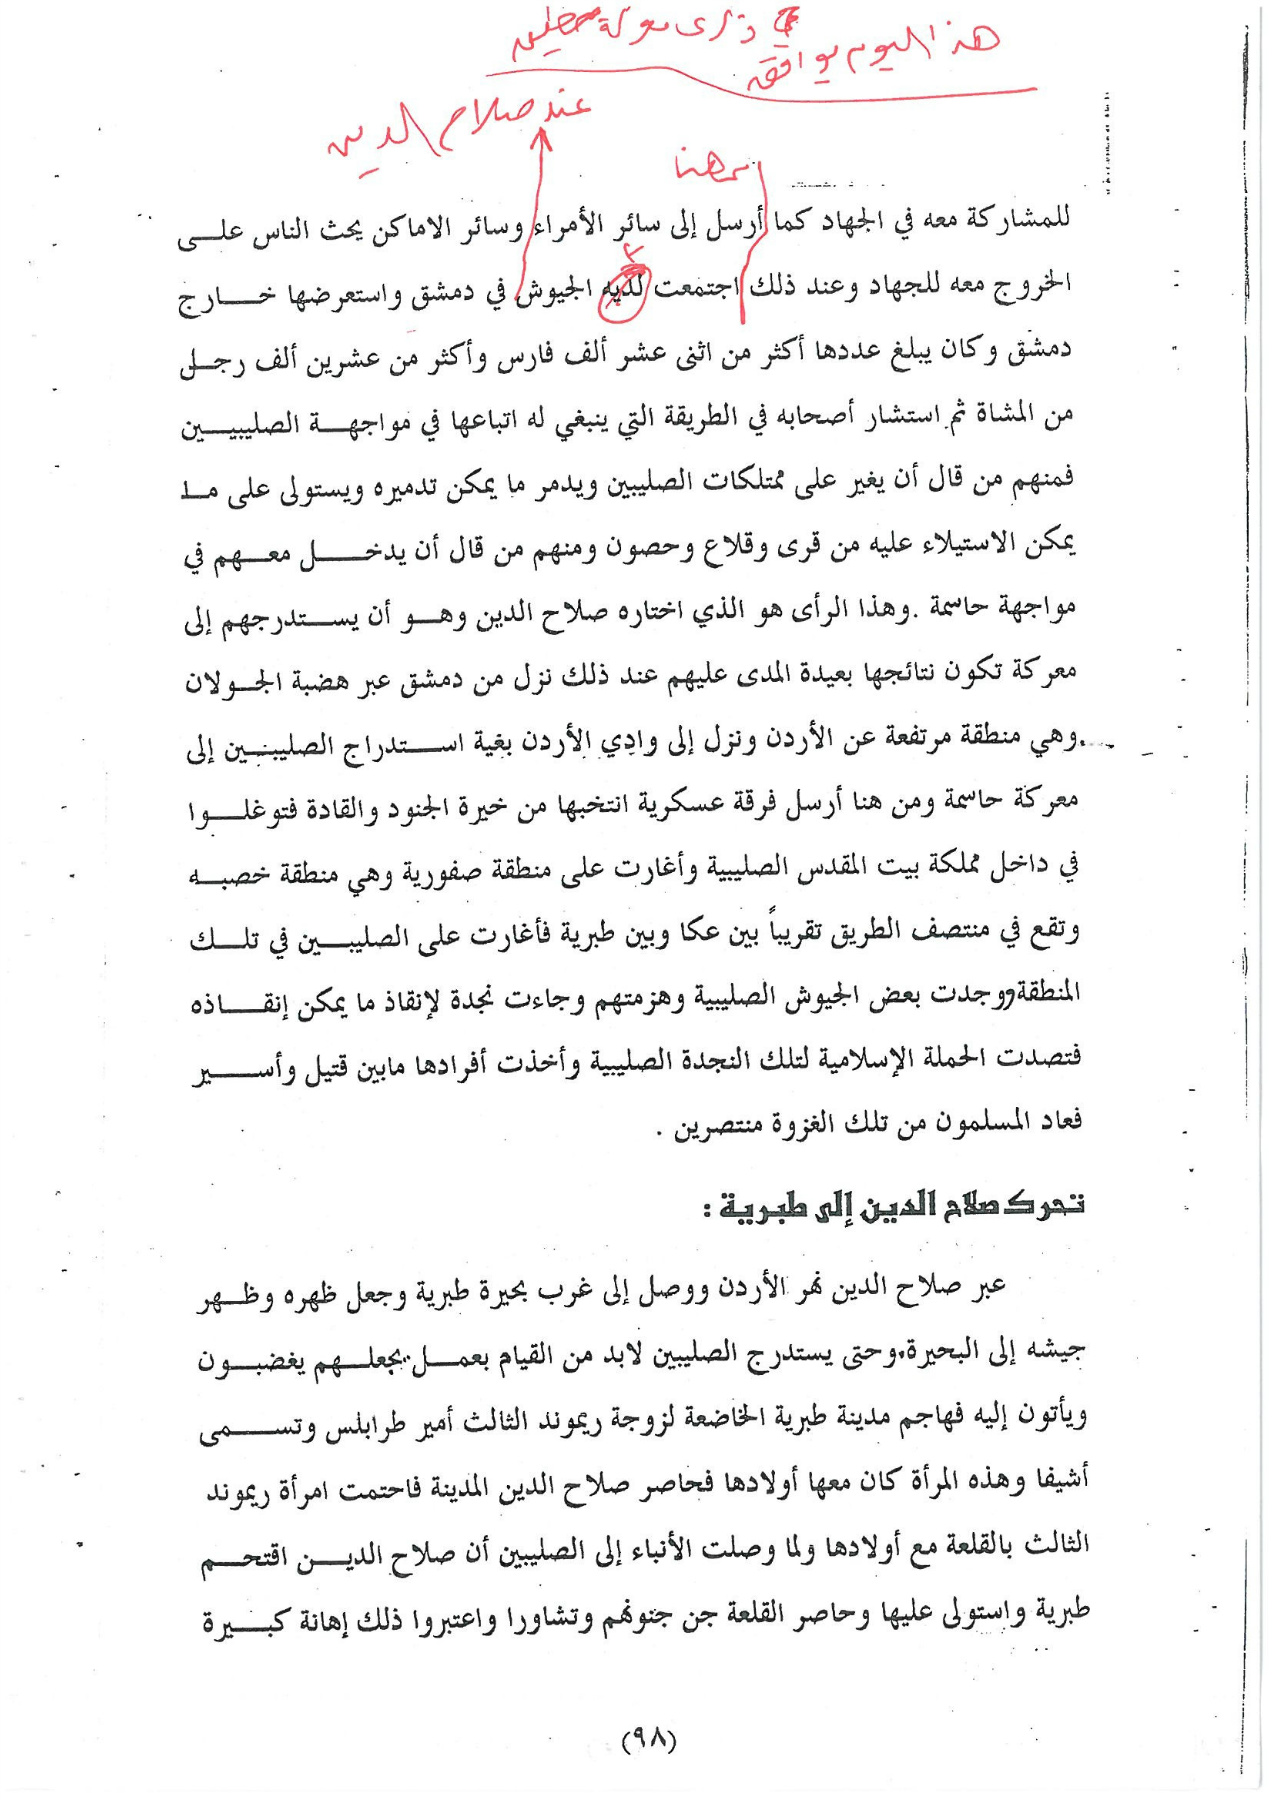 هذا اليوم يوافق ذكرى معركة حطين
عند صلاح الدين
من هنا
للمشاركة معه في الجهاد كما أرسل إلى سائر الأمراء وسائر الاماكن يحث الناس على
الخروج معه للجهاد وعند ذلك اجتمعت لديه الجيوش في دمشق واستعرضها خارج
دمشق وكان يبلغ عددها أكثر من اثنى عشر ألف فارس وأكثر من عشرين ألف رجل
من المشاة ثم استشار أصحابه في الطريقة التي ينبغي له اتباعها في مواجهة الصليبيين
فمنهم من قال أن يغير على ممتلكات الصليبين ويدمر ما يمكن تدميره ويستولى على ما
يمكن الاستيلاء عليه من قرى وقلاع وحصون ومنهم من قال أن يدخل معهم في
مواجهة حاسمة .وهذا الرأى هو الذي اختاره صلاح الدين وهو أن يستدرجهم إلى
معركة تكون نتائجها بعيدة المدى عليهم عند ذلك نزل من دمشق عبر هضبة الجولان
وهي منطقة مرتفعة عن الأردن ونزل إلى وادي الأردن بغية استدراج الصليبين إلى
معركة حاسمة ومن هنا أرسل فرقة عسكرية انتخبها من خيرة الجنود والقادة فتوغلوا
في داخل مملكة بيت المقدس الصليبية وأغارت على منطقة صفورية وهي منطقة خصبه
وتقع في منتصف الطريق تقريباً بين عكا وبين طبرية فأغارت على الصليبين في تلك
المنطقة ووجدت بعض الجيوش الصليبية وهزمتهم وجاءت نجدة لإنقاذ ما يمكن إنقاذه
فتصدت الحملة الإسلامية لتلك النجدة الصليبية وأخذت أفرادها مابين قتيل وأسير
فعاد المسلمون من تلك الغزوة منتصرين .
تحرك صلاح الدين إلى طبرية :
عبر صلاح الدين نهر الأردن ووصل إلى غرب بحيرة طبرية وجعل ظهره وظهر
جيشه إلى البحيرة،وحتى يستدرج الصليبين لابد من القيام بعمل يجعلهم يغضبون
ويأتون إليه فهاجم مدينة طبرية الخاضعة لزوجة ريموند الثالث أمير طرابلس وتسمى
أشيفا وهذه المرأة كان معها أولادها فحاصر صلاح الدين المدينة فاحتمت امرأة ريموند
الثالث بالقلعة مع أولادها ولما وصلت الأنباء إلى الصليبين أن صلاح الدين اقتحم
طبرية واستولى عليها وحاصر القلعة جن جنونهم وتشاورا واعتبروا ذلك إهانة كبيرة
(٩٨)